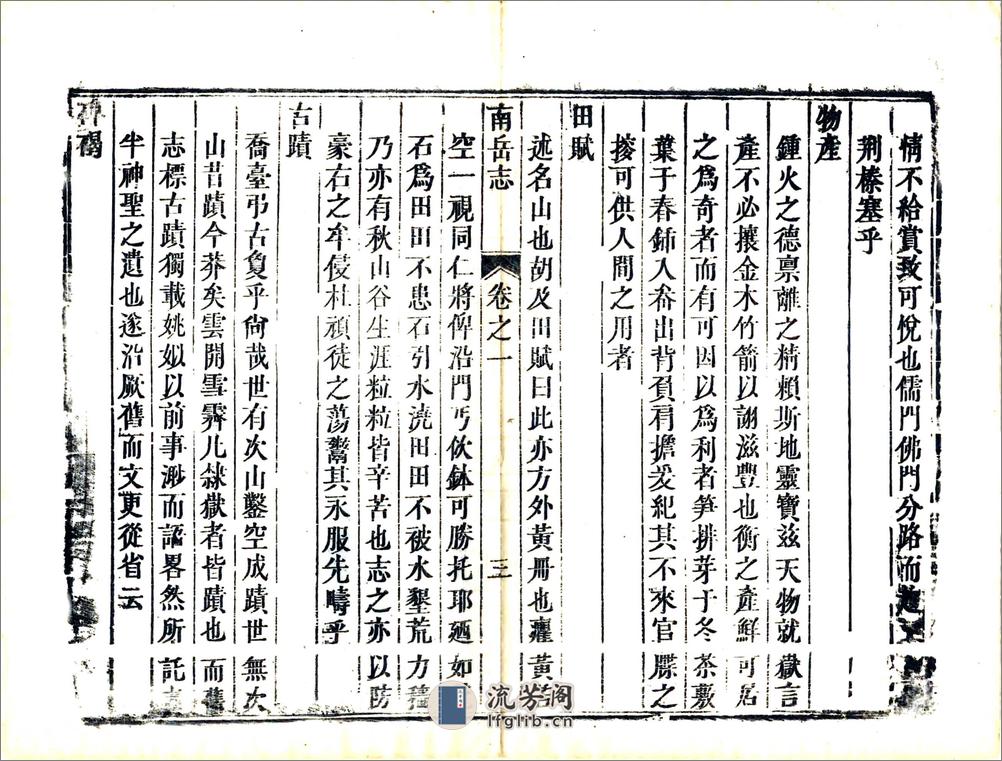 情不給賞致可悅也儒門佛門分路而趨
荆榛塞乎
物產
鍾火之德禀離之精賴斯地靈寶兹天物就嶽言
產不必攘金木竹箭以詡滋豐也衡之產鮮可居
之爲奇者而有可因以爲利者笋排芽于冬茶敷
葉于春鈽入畚出背負肩擔爰紀其不來官牒之
掞可供人間之用者
田賦
述名山也胡及田賦曰此亦方外黃冊也癯黃
南岳志 卷之一 三
空一視同仁將俾沿門丐飲鉢可勝托耶廼如
石爲田田不患石引水澆田田不被水墾荒力穡
乃亦有秋山谷生涯粒粒皆辛苦也志之亦以防
豪右之牟侵杜頑徒之蕩鬻其永服先疇乎
古蹟
喬臺弔古夐乎尙哉世有次山鑿空成蹟世無次
山昔蹟今莽矣雲開雪霽凡隸嶽者皆蹟也而舊
志標古蹟獨載姚姒以前事渺而語畧然所託
半神聖之遺也遂沿厥舊而文更從省云
碑碣
流芳阁
lfglib.cn